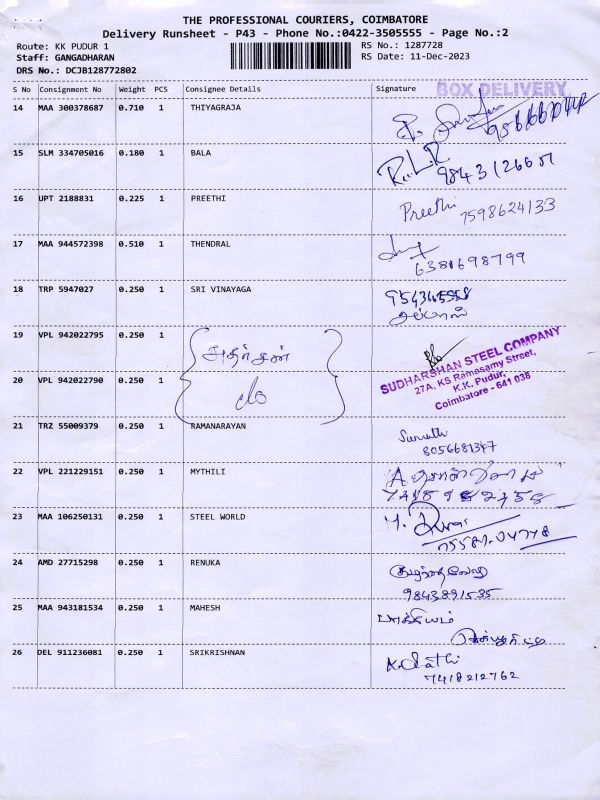 THE PROFESSIONAL COURIERS, COIMBATORE
Delivery Runsheet - P43 - Phone No.:0422-3505555 - Page No.:2
Route: KK PUDUR 1 RS No.: 1287728
Staff: GANGADHARAN RS Date: 11-Dec-2023
DRS No.: DCJB128772802
S No Consignment No Weight PCS Consignee Details Signature BOX DELIVERY
14 MAA 300378687 0.710 1 THIYAGRAJA
15 SLM 334705016 0.180 1 BALA
R.L.R
9843126607
16 UPT 2188831 0.225 1 PREETHI Preethi 7598624133
17 MAA 944572398 0.510 1 THENDRAL
6381698799
18 TRP 5947027 0.250 1 SRI VINAYAGA
19 VPL 942022795 0.250 1
அதர்சன்
c/o
SUDHARSHAN STEEL COMPANY
27A, KS Ramasamy Street,
K.K. Pudur,
Coimbatore - 641 038
20 VPL 942022790 0.250 1
21 TRZ 55009379 0.250 1 RAMANARAYAN
Sumathi
8056681347
22 VPL 221229151 0.250 1 MYTHILI
23 MAA 106250131 0.250 1 STEEL WORLD
24 AMD 27715298 0.250 1 RENUKA
குழந்தைவேலு
9843891535
25 MAA 943181534 0.250 1 MAHESH
பாக்கியம்
26 DEL 911236081 0.250 1 SRIKRISHNAN
7418212762